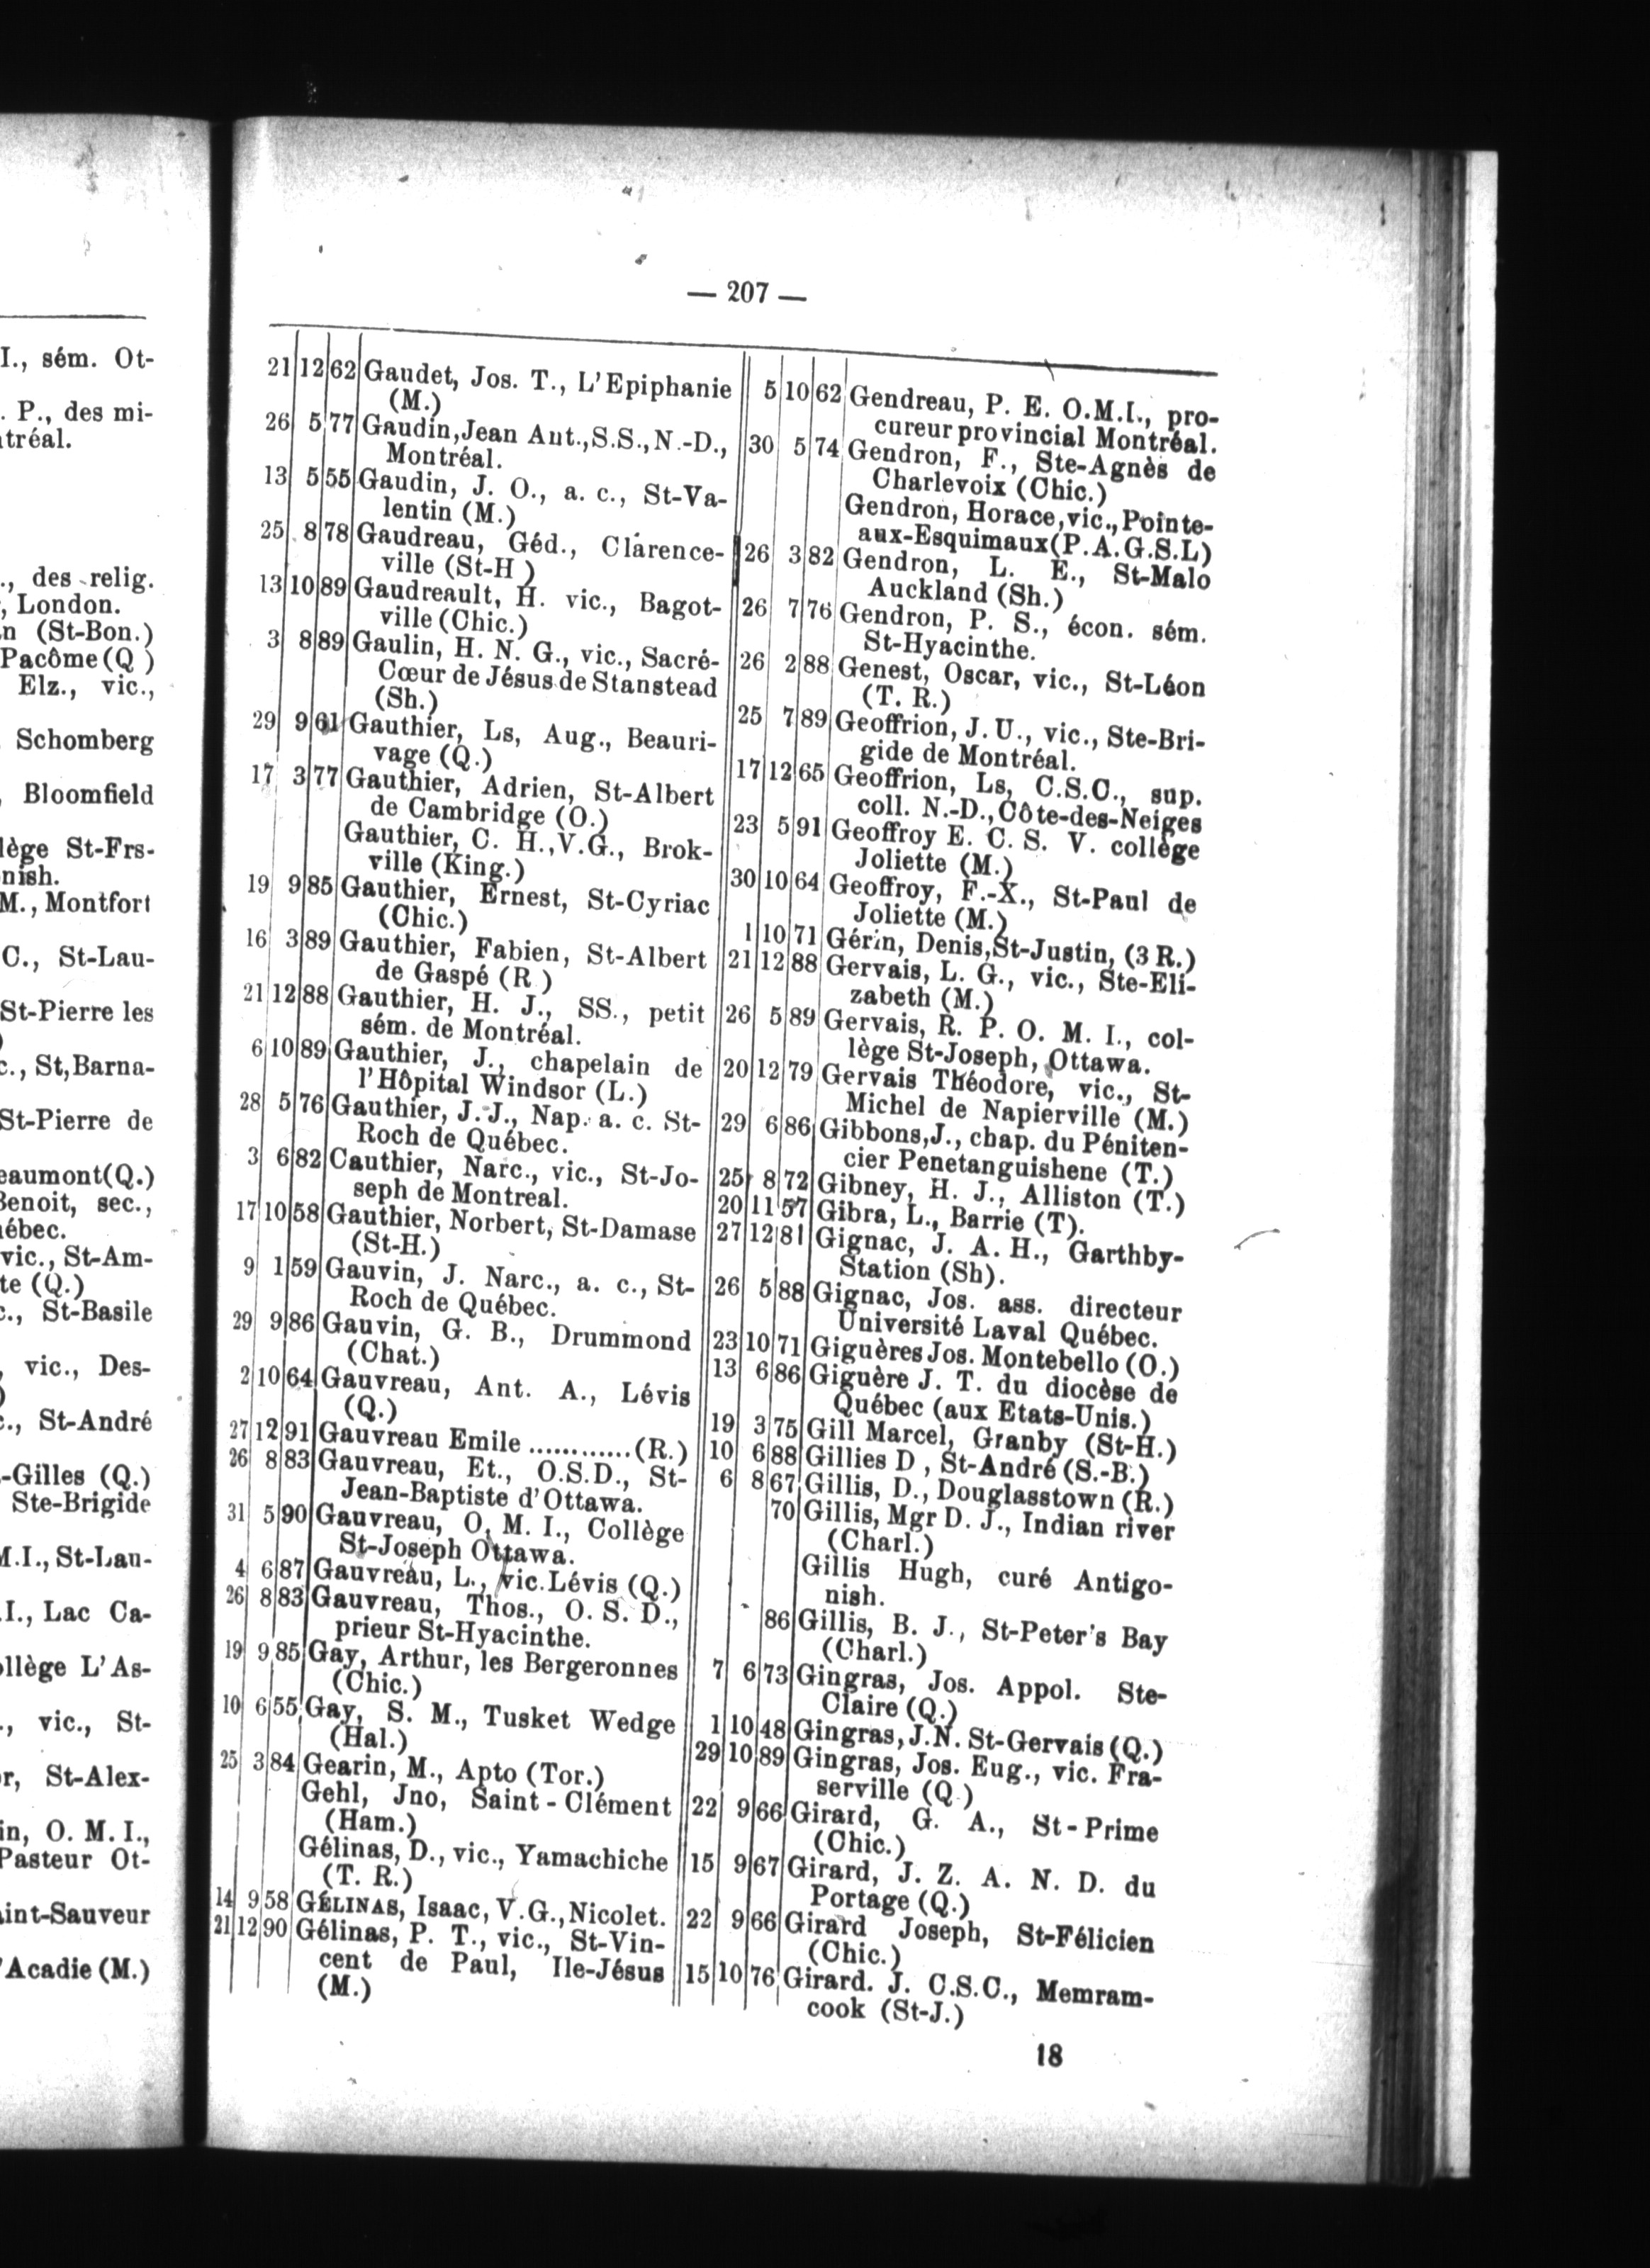 I., sém. Ot-
. P., des mi-
tréal.
., des relig.
, London.
n (St-Bon.)
Pacôme (Q )
Elz., vic.,
Schomberg
, Bloomfield
lège St-Frs-
nish.
M., Montfort
C., St-Lau-
St-Pierre les
)
c., St,Barna-
St-Pierre de
eaumont(Q.)
Benoit, sec.,
ébec.
vic., St-Am-
te (Q.)
c., St-Basile
, vic., Des-
)
c., St-André
-Gilles (Q.)
Ste-Brigide
M.I., St-Lau-
I., Lac Ca-
ollège L'As-
., vic., St-
r, St-Alex-
in, O. M. I.,
Pasteur Ot-
aint-Sauveur
'Acadie (M.)
— 207 —
21 12 62 Gaudet, Jos. T., L'Epiphanie
(M.)
26 5 77 Gaudin,Jean Ant.,S.S.,N.-D.,
Montréal.
13 5 55 Gaudin, J. O., a. c., St-Va-
lentin (M.)
25 8 78 Gaudreau, Géd., Clarence-
ville (St-H )
13 10 89 Gaudreault, H. vic., Bagot-
ville (Chic.)
3 8 89 Gaulin, H. N. G., vic., Sacré-
Cœur de Jésus de Stanstead
(Sh.)
29 9 61 Gauthier, Ls, Aug., Beauri-
vage (Q.)
17 3 77 Gauthier, Adrien, St-Albert
de Cambridge (O.)
Gauthier, C. H.,V.G., Brok-
ville (King.)
19 9 85 Gauthier, Ernest, St-Cyriac
(Chic.)
16 3 89 Gauthier, Fabien, St-Albert
de Gaspé (R )
21 12 88 Gauthier, H. J., SS., petit
sém. de Montréal.
6 10 89 Gauthier, J., chapelain de
l'Hôpital Windsor (L.)
28 5 76 Gauthier, J.-J., Nap. a. c. St-
Roch de Québec.
3 6 82 Cauthier, Narc., vic., St-Jo-
seph de Montreal.
17 10 58 Gauthier, Norbert, St-Damase
(St-H.)
9 1 59 Gauvin, J. Narc., a. c., St-
Roch de Québec.
29 9 86 Gauvin, G. B., Drummond
(Chat.)
2 10 64 Gauvreau, Ant. A., Lévis
(Q.)
27 12 91 Gauvreau Emile ............(R.)
26 8 83 Gauvreau, Et., O.S.D., St-
Jean-Baptiste d'Ottawa.
31 5 90 Gauvreau, O. M. I., Collège
St-Joseph Ottawa.
4 6 87 Gauvreau, L., vic.Lévis (Q.)
26 8 83 Gauvreau, Thos., O. S. D.,
prieur St-Hyacinthe.
19 9 85 Gay, Arthur, les Bergeronnes
(Chic.)
10 6 55 Gay, S. M., Tusket Wedge
(Hal.)
25 3 84 Gearin, M., Apto (Tor.)
Gehl, Jno, Saint-Clément
(Ham.)
Gélinas, D., vic., Yamachiche
(T. R.)
14 9 58 GÉLINAS, Isaac, V.G.,Nicolet.
21 12 90 Gélinas, P. T., vic., St-Vin-
cent de Paul, Ile-Jésus
(M.)
5 10 62 Gendreau, P. E. O.M.I., pro-
cureur provincial Montréal.
30 5 74 Gendron, F., Ste-Agnès de
Charlevoix (Chic.)
Gendron, Horace,vic.,Pointe-
aux-Esquimaux(P.A.G.S.L)
26 3 82 Gendron, L. E., St-Malo
Auckland (Sh.)
26 7 76 Gendron, P. S., écon. sém.
St-Hyacinthe.
26 2 88 Genest, Oscar, vic., St-Léon
(T. R.)
25 7 89 Geoffrion, J. U., vic., Ste-Bri-
gide de Montréal.
17 12 65 Geoffrion, Ls, C.S.C., sup.
coll. N.-D.,Côte-des-Neiges
23 5 91 Geoffroy E. C. S. V. collège
Joliette (M.)
30 10 64 Geoffroy, F.-X., St-Paul de
Joliette (M.)
1 10 71 Gérin, Denis,St-Justin, (3 R.)
21 12 88 Gervais, L. G., vic., Ste-Eli-
zabeth (M.)
26 5 89 Gervais, R. P. O. M. I., col-
lège St-Joseph, Ottawa.
20 12 79 Gervais Théodore, vic., St-
Michel de Napierville (M.)
29 6 86 Gibbons,J., chap. du Péniten-
cier Penetanguishene (T.)
25 8 72 Gibney, H. J., Alliston (T.)
20 11 57 Gibra, L., Barrie (T).
27 12 81 Gignac, J. A. H., Garthby-
Station (Sh).
26 5 88 Gignac, Jos. ass. directeur
Université Laval Québec.
23 10 71 Giguères Jos. Montebello (O.)
13 6 86 Giguère J. T. du diocèse de
Québec (aux Etats-Unis.)
19 3 75 Gill Marcel, Granby (St-H.)
10 6 88 Gillies D , St-André (S.-B.)
6 8 67 Gillis, D., Douglasstown (R.)
70 Gillis, Mgr D. J., Indian river
(Charl.)
Gillis Hugh, curé Antigo-
nish.
86 Gillis, B. J., St-Peter's Bay
(Charl.)
7 6 73 Gingras, Jos. Appol. Ste-
Claire (Q.)
1 10 48 Gingras, J.N. St-Gervais (Q.)
29 10 89 Gingras, Jos. Eug., vic. Fra-
serville (Q )
22 9 66 Girard, G. A., St-Prime
(Chic.)
15 9 67 Girard, J. Z. A. N. D. du
Portage (Q.)
22 9 66 Girard Joseph, St-Félicien
(Chic.)
15 10 76 Girard. J. C.S.C., Memram-
cook (St-J.)
18